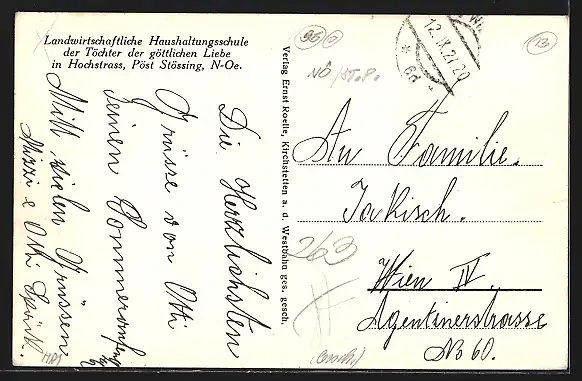 Landwirtschaftliche Haushaltungsschule
der Töchter der göttlichen Liebe
in Hochstrass, Post Stössing, N-Oe.
Die Herzlichsten
Grüsse von Otti
Seinen
Mitt vielen Grüssen
Mizzi & Otti
Verlag Ernst Roelle, Kirchstetten a. d. Westbahn ges. gesch.
96
13
12. IX. 27 20
* 6d *
NÖ / ST. P.
An Familie.
Jakisch.
Wien IV.
Argentinerstrasse
No 60.
263